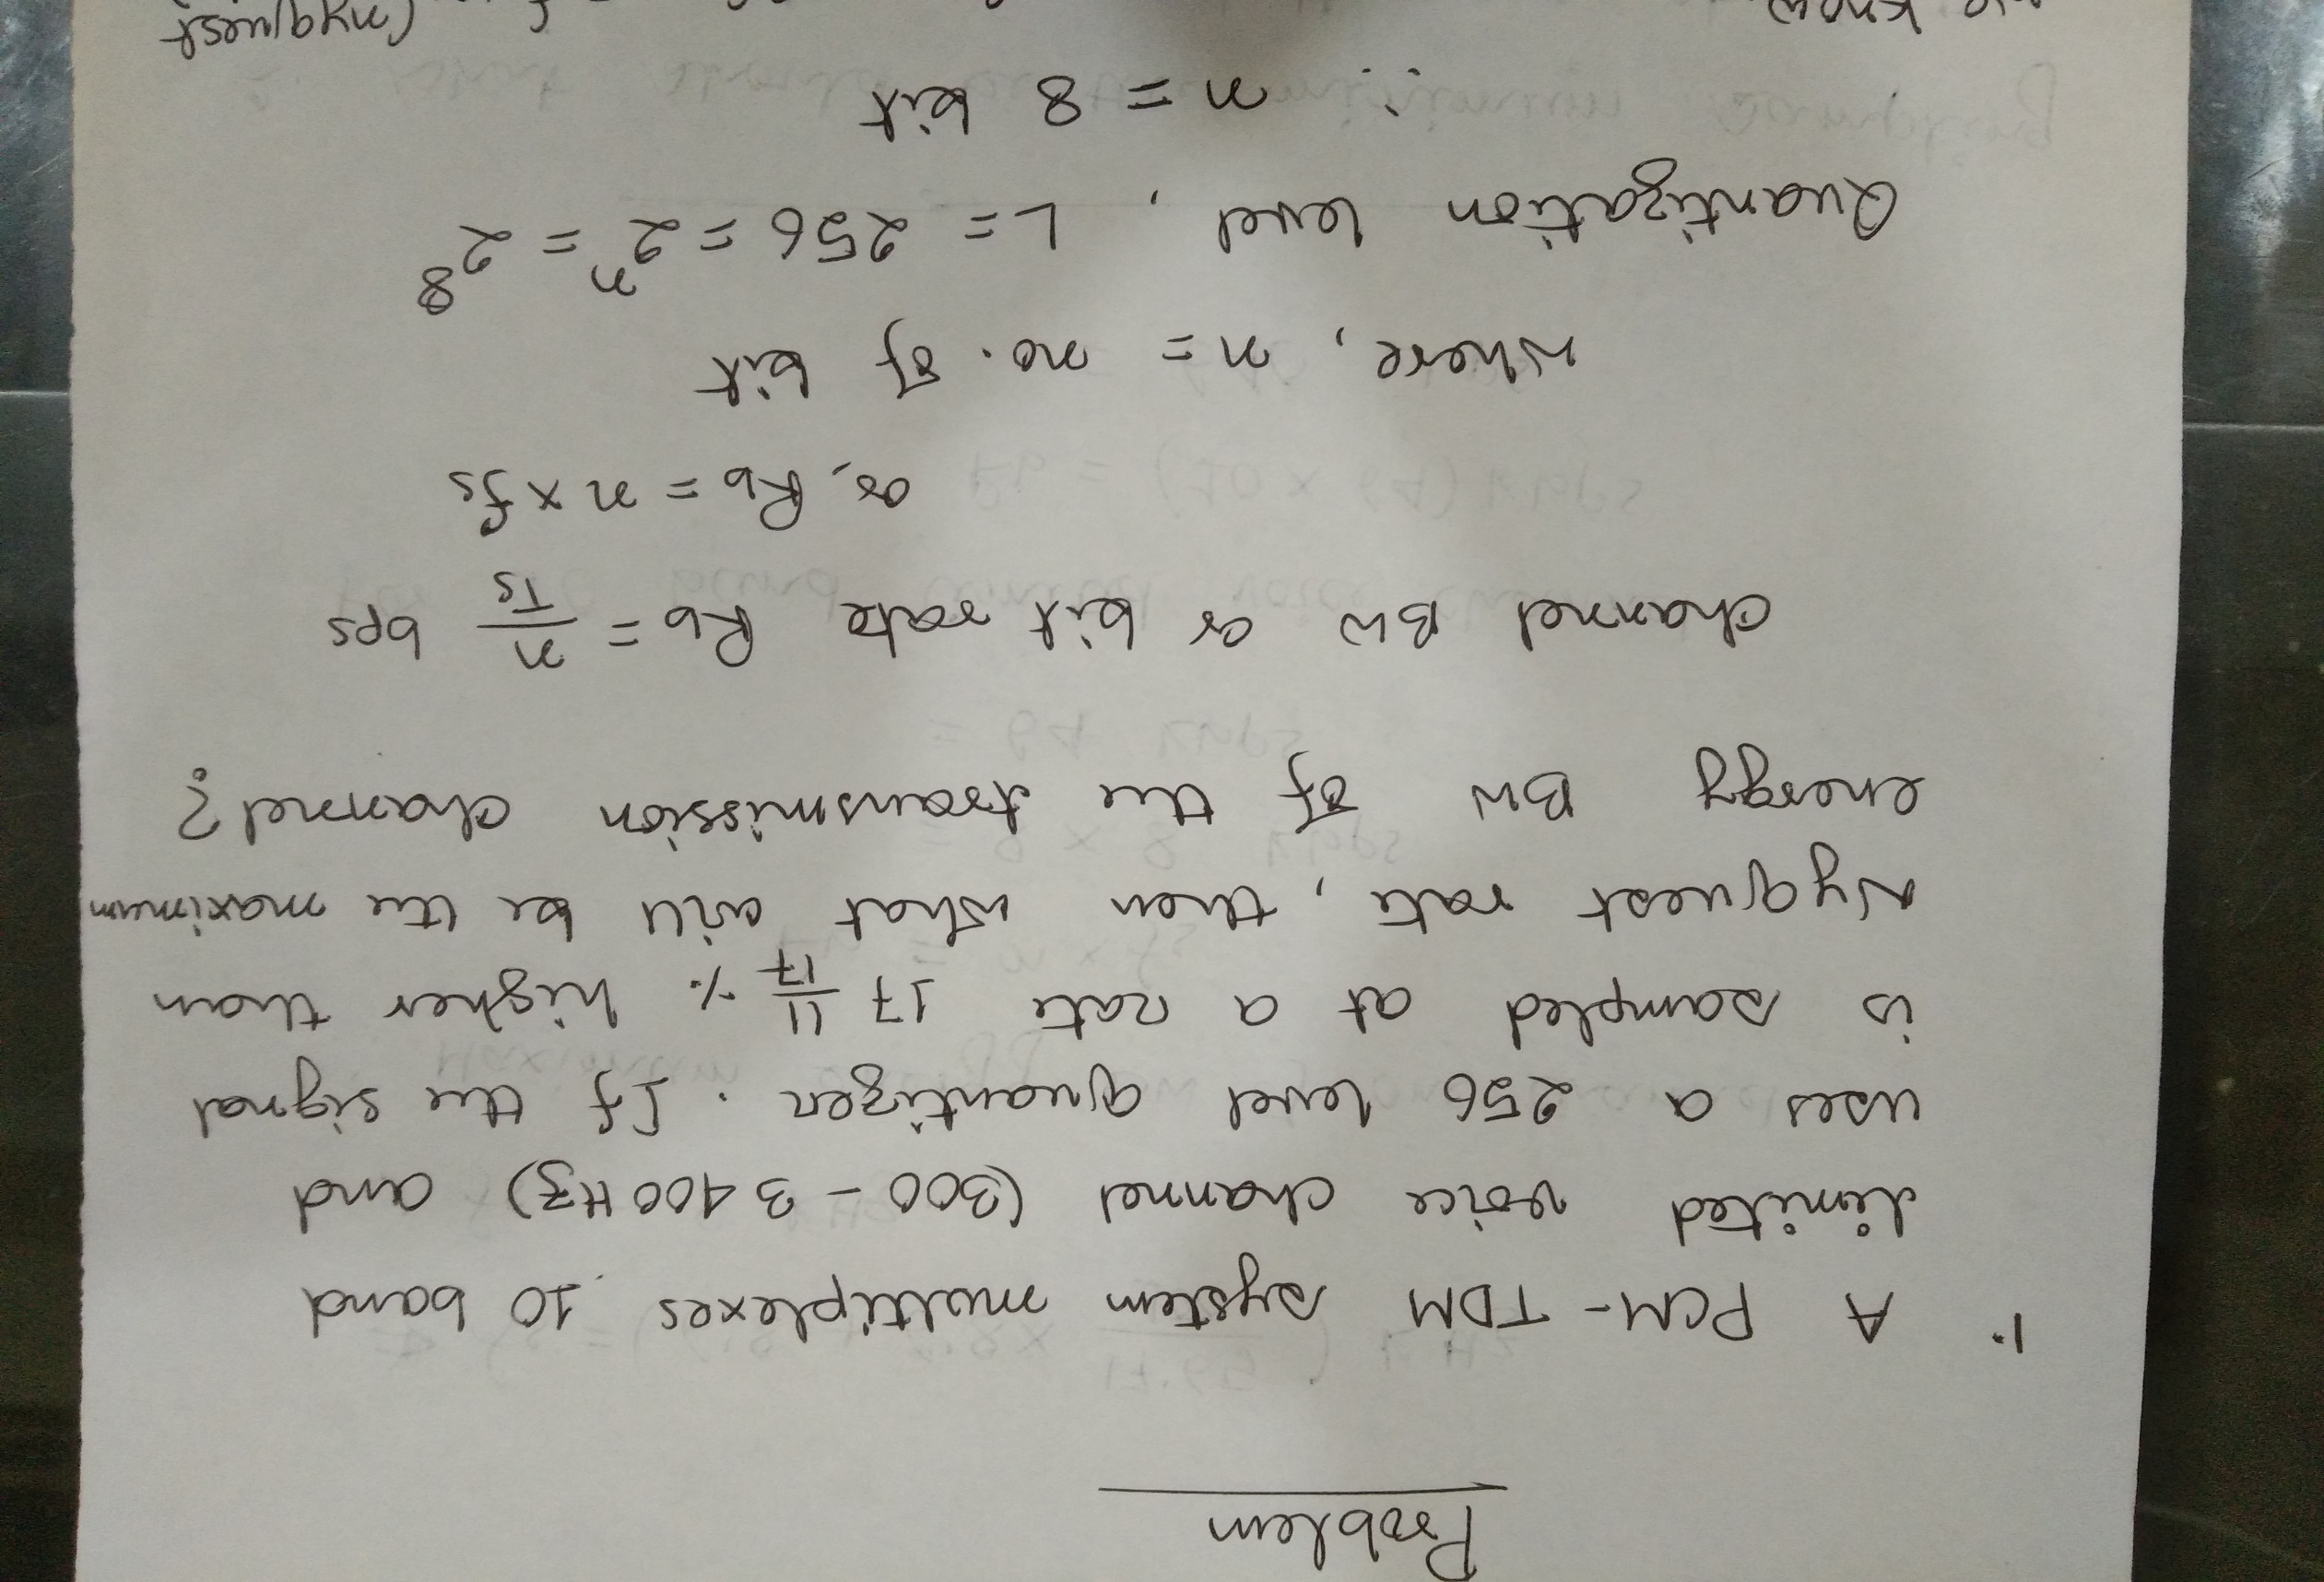 Problem
1. A PCM-TDM system multiplexes 10 band
limited voice channel (300 - 3400Hz) and
uses a 256 level quantizer. If the signal
is sampled at a rate 17 11/17 % higher than
Nyquest rate, then what will be the maximum
energy BW of the transmission channel?
channel BW or bit rate Rb = n/Ts bps
or, Rb = n x fs
where, n = no. of bit
Quantization level, L = 256 = 2^n = 2^8
∴ n = 8 bit
know
(nyquest